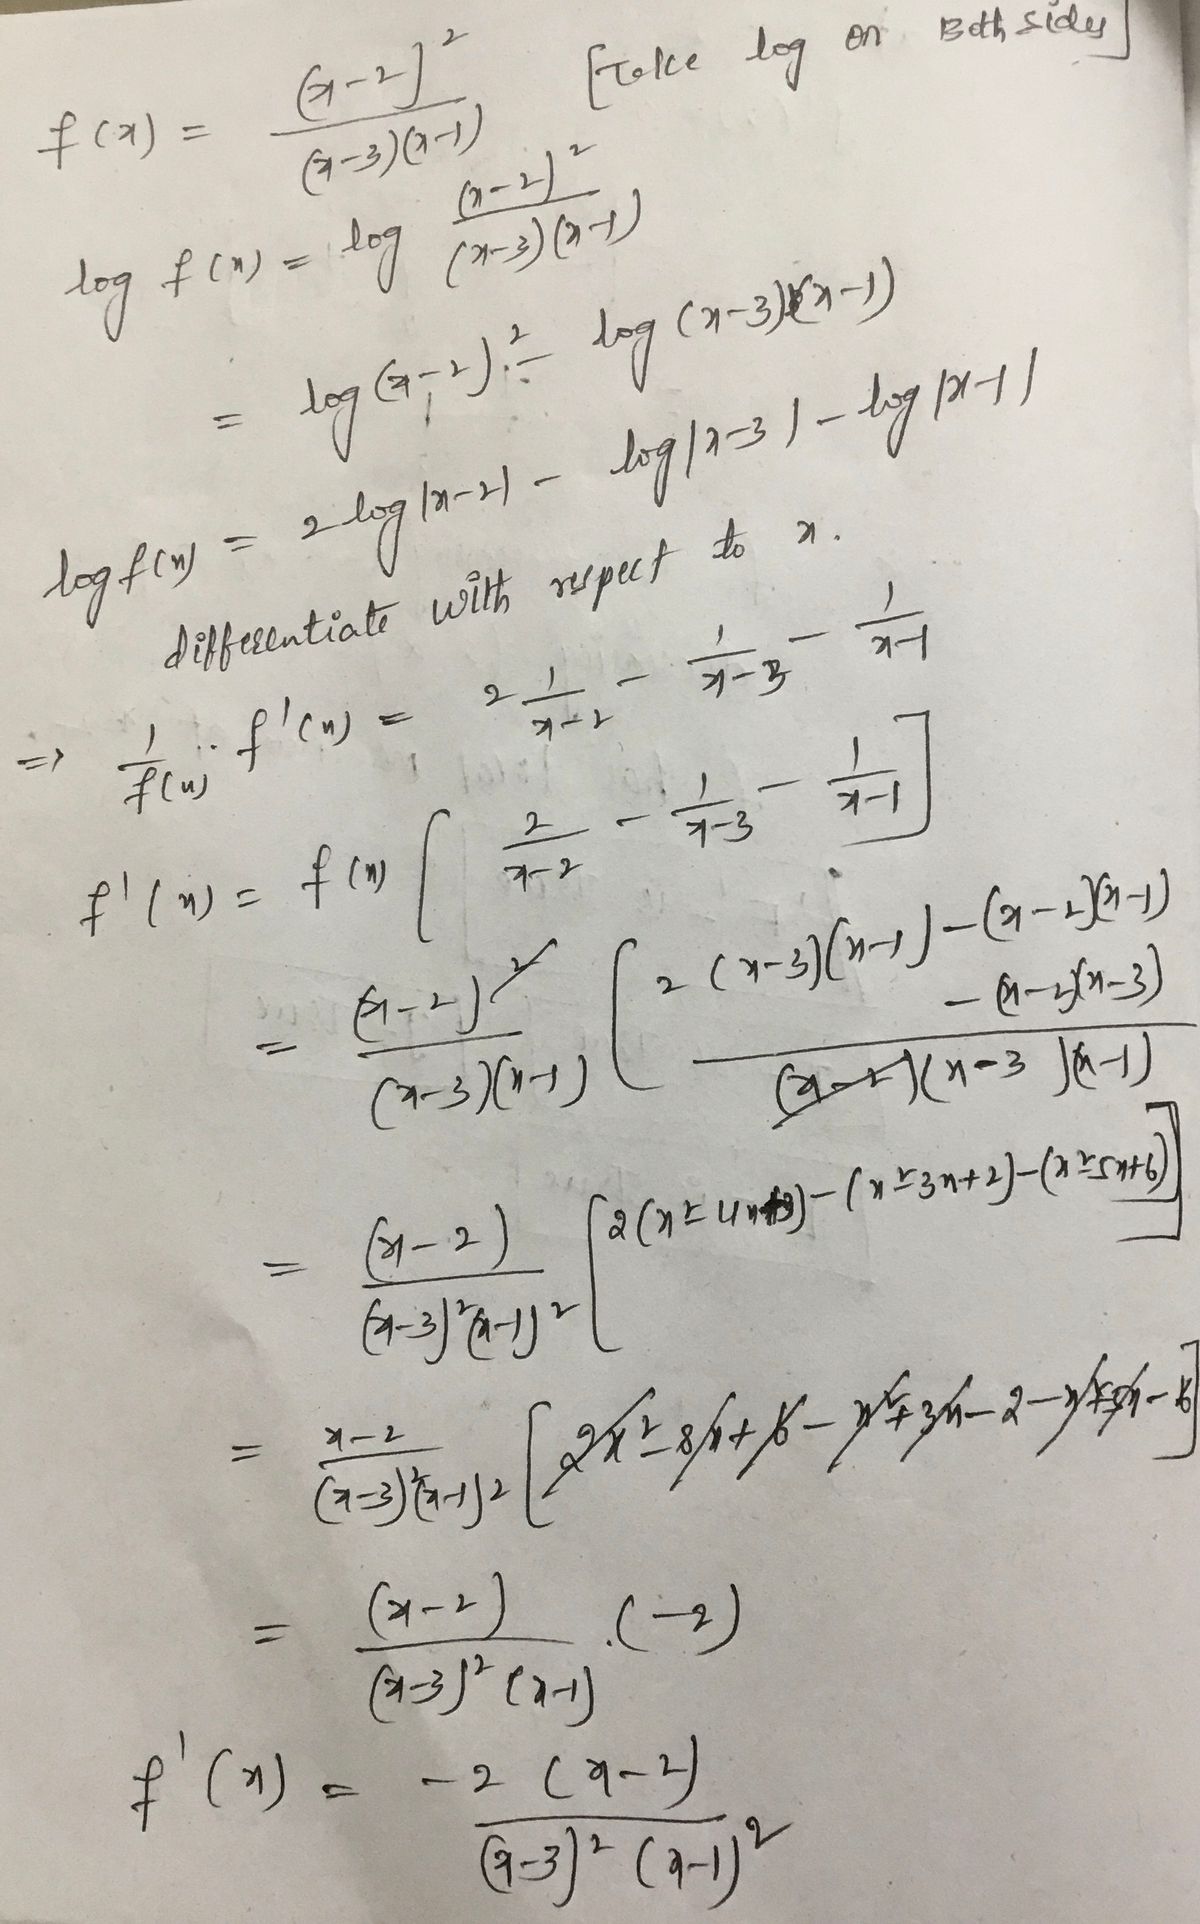 f(x) = (x-2)² / (x-3)(x-1) [Take log on Both sides]
log f(x) = log (x-2)² / (x-3)(x-1)
= log (x-2)² - log (x-3)(x-1)
log f(x) = 2 log |x-2| - log |x-3| - log |x-1|
differentiate with respect to x.
=> 1/f(x) . f'(x) = 2 1/x-2 - 1/x-3 - 1/x-1
f'(x) = f(x) [ 2/x-2 - 1/x-3 - 1/x-1 ]
= (x-2)² / (x-3)(x-1) [ 2(x-3)(x-1) - (x-2)(x-1) - (x-2)(x-3) / (x-2)(x-3)(x-1)
= (x-2) / (x-3)²(x-1)² [ 2(x²-4x+3) - (x²-3x+2) - (x²-5x+6) ]
= x-2 / (x-3)²(x-1)² [ 2x²-8x+6 - x²+3x-2 - x²+5x-6 ]
= (x-2) / (x-3)² (x-1) . (-2)
f'(x) = -2 (x-2) / (x-3)² (x-1)²